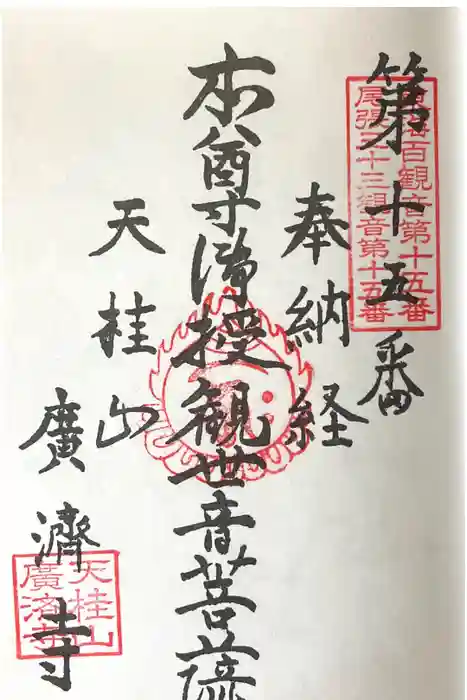 第十五番
東海百観音第十五番
尾張三十三観音第十五番
奉納経
本尊淨授観世音菩薩
天桂山
廣濟寺
天桂山
廣济寺